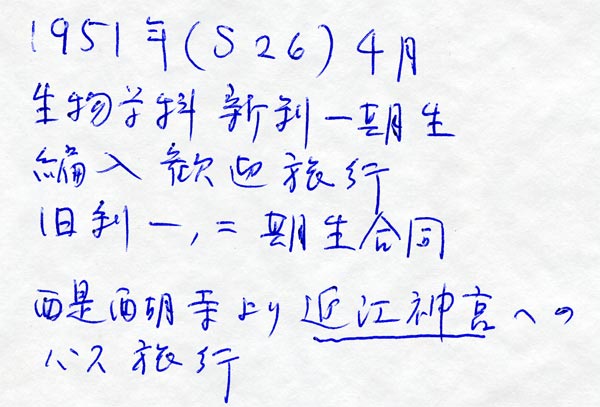 1951年(S26)4月
生物学科 新制一期生
編入 歓迎旅行
旧制一,二期生合同
西是西胡寺より近江神宮への
バス旅行